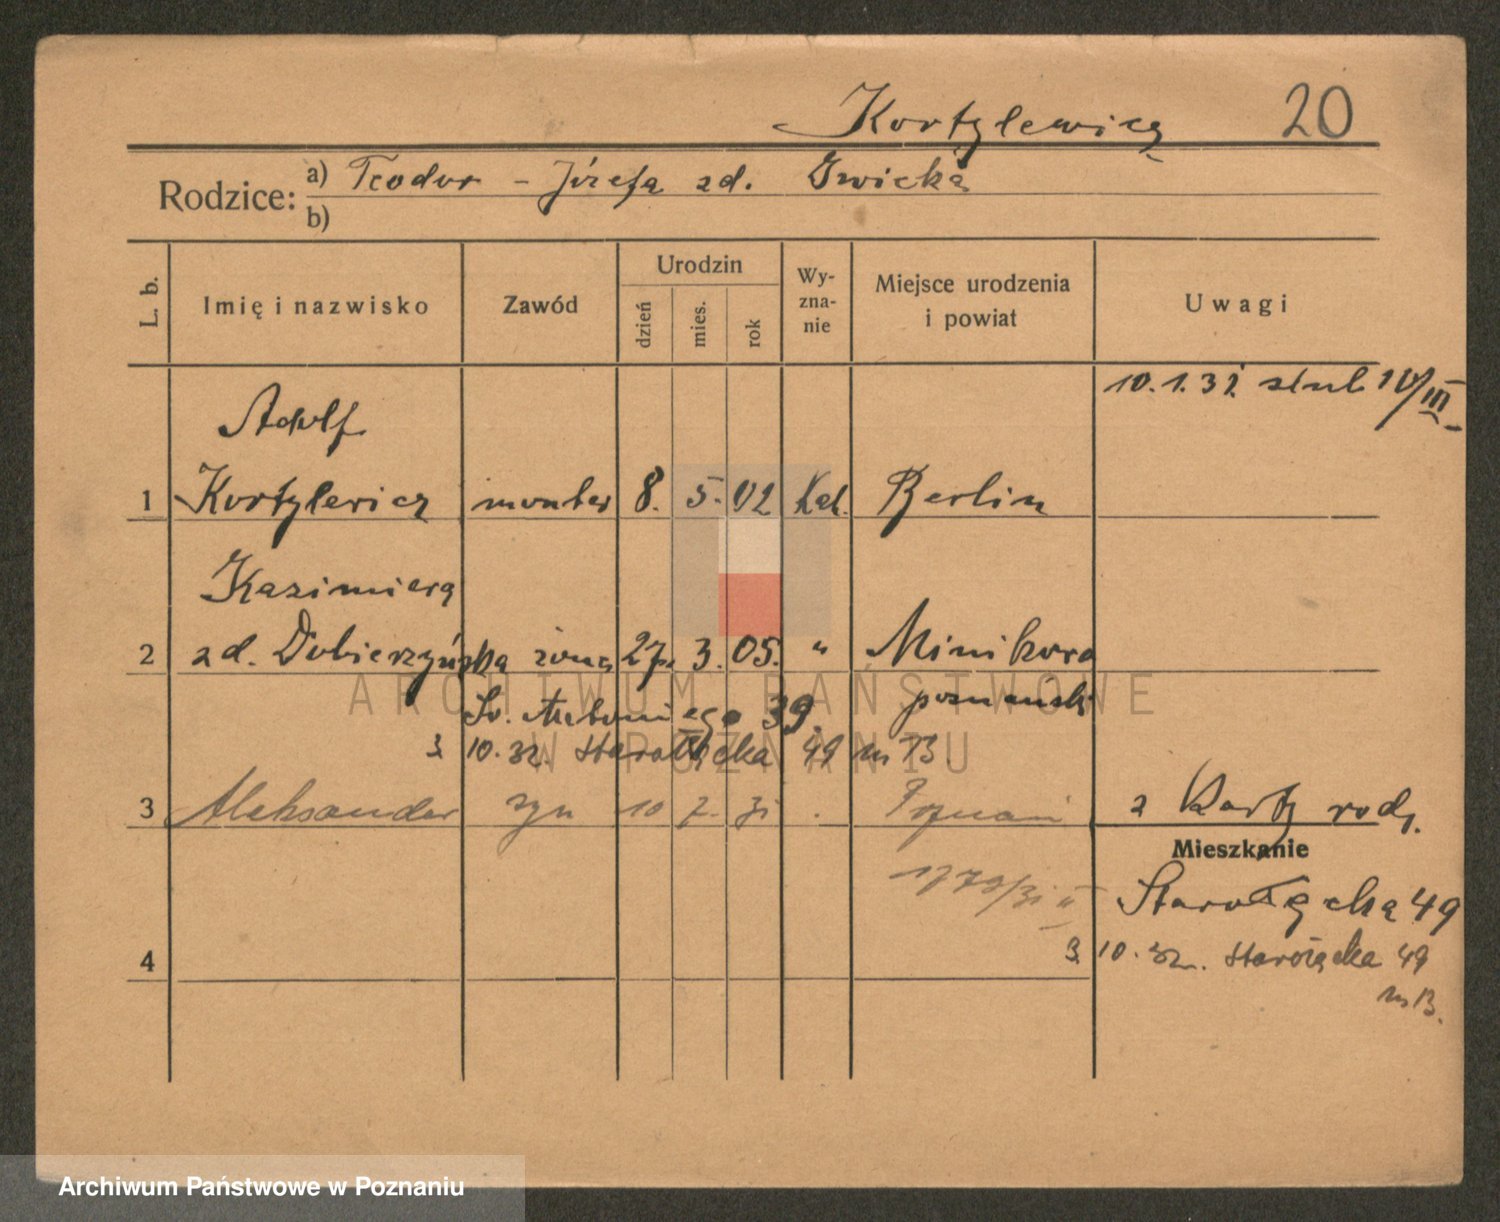 Kortylewicz 20
Rodzice: a) Teodor - Józefa zd. Iwicka
b)
L. b. Imię i nazwisko Zawód Urodzin dzień mies. rok Wy-zna-nie Miejsce urodzenia i powiat Uwagi
10.1.32 ślub IV/III
Adolf
1 Kortylewicz monter 8. 5. 02 Kat. Berlin
Kazimiera
2 zd. Dobierzyńska żona 27. 3. 05. " Minikowo
Św. Antoniego 39. poznański
3. 10.32. Starołęcka 49 m 13.
3 Aleksander syn 10 7. 31 . Poznań z Karty rodz.
Mieszkanie
Starołęcka 49
4 3. 10.32. Starołęcka 49
m 13.
ARCHIWUM PAŃSTWOWE
W POZNANIU
Archiwum Państwowe w Poznaniu